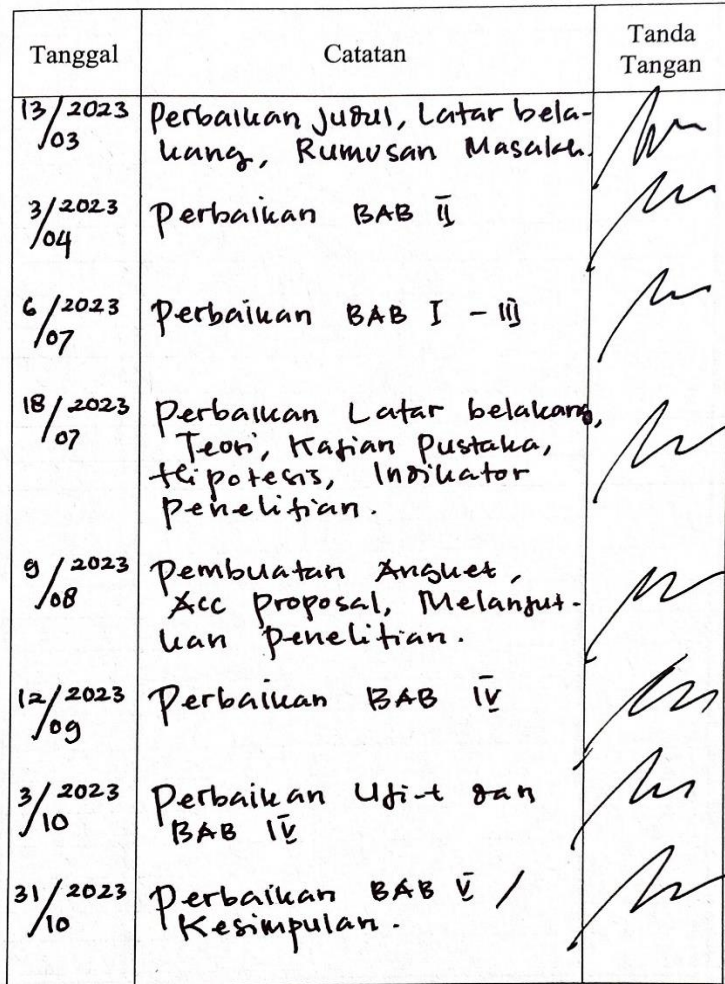 Tanggal Catatan Tanda
Tangan
13/2023 Perbaikan Judul, Latar bela-
/03 kang, Rumusan Masalah.
3/2023 Perbaikan BAB II
/04
6/2023 Perbaikan BAB I - III
/07
18/2023 Perbaikan Latar belakang,
/07 Teori, Kajian Pustaka,
Hipotesis, Indikator
penelitian.
9/2023 Pembuatan Angket,
/08 Acc proposal, Melanjut-
kan penelitian.
12/2023 Perbaikan BAB IV
/09
3/2023 Perbaikan Uji-t dan
/10 BAB IV
31/2023 Perbaikan BAB V /
/10 Kesimpulan.